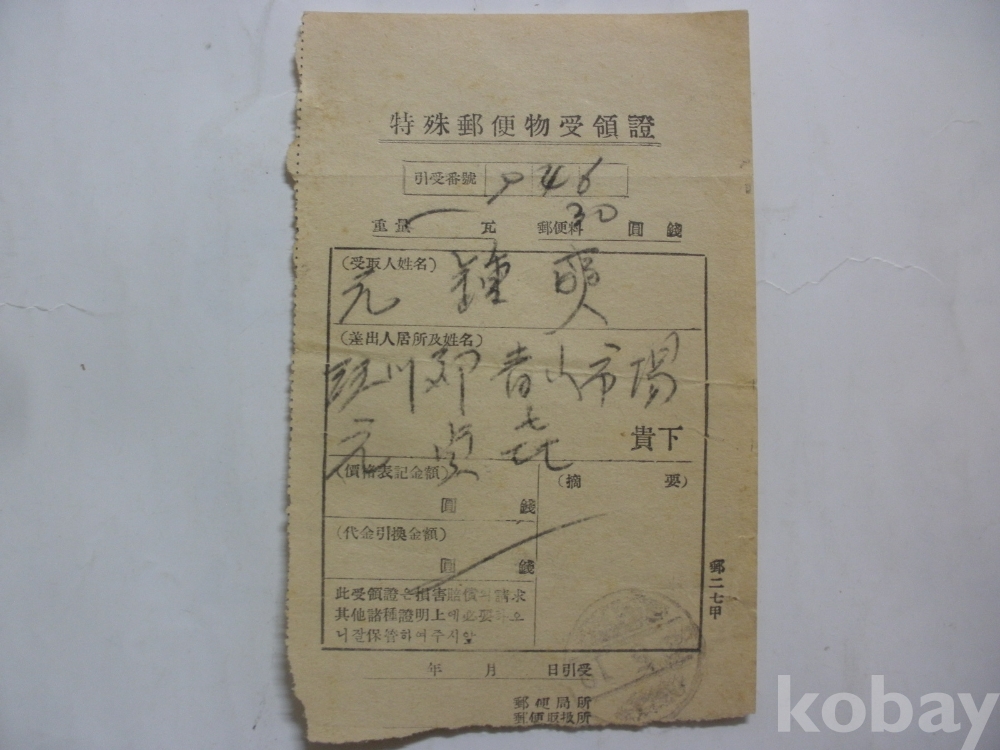 特殊郵便物受領證
引受番號 946
重量 瓦 郵便料 30 圓 錢
(受取人姓名)
元 鍾 奭
(差出人居所及姓名)
郡 青山市場
元 貞 㐂
貴下
(價格表記金額)
圓 錢
(摘 要)
(代金引換金額)
圓 錢
此受領證은損害賠償의請求
其他諸種證明上에必要하오
니잘保管하여주시압
年 月 日引受
郵便局所
郵便取扱所
郵二七甲
kobay